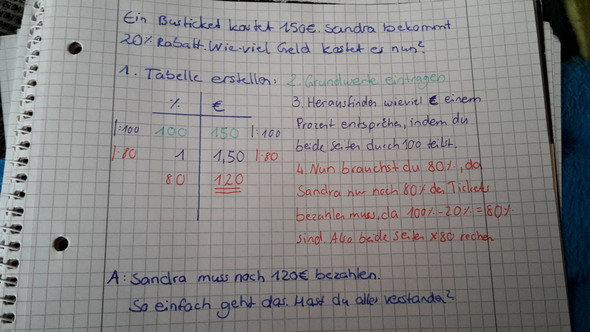 Ein Busticket kostet 150€. Sandra bekommt
20% Rabatt. Wie viel Geld kostet es nun?
1. Tabelle erstellen. 2. Grundwerte eintragen
% €
|:100 100 150 |:100
|·80 1 1,50 |·80
80 120
3. Herausfinden wieviel € einem
Prozent entsprechen, indem du
beide Seiten durch 100 teilst.
4. Nun brauchst du 80%, da
Sandra nur noch 80% des Tickets
bezahlen muss, da 100%-20%=80%
sind. Also beide Seiten ×80 rechen
A: Sandra muss noch 120€ bezahlen.
So einfach geht das. Hast du alles verstanden?